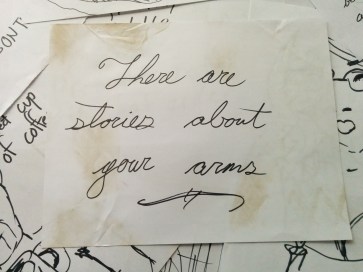 There are
stories about
your arms
cup
of coff